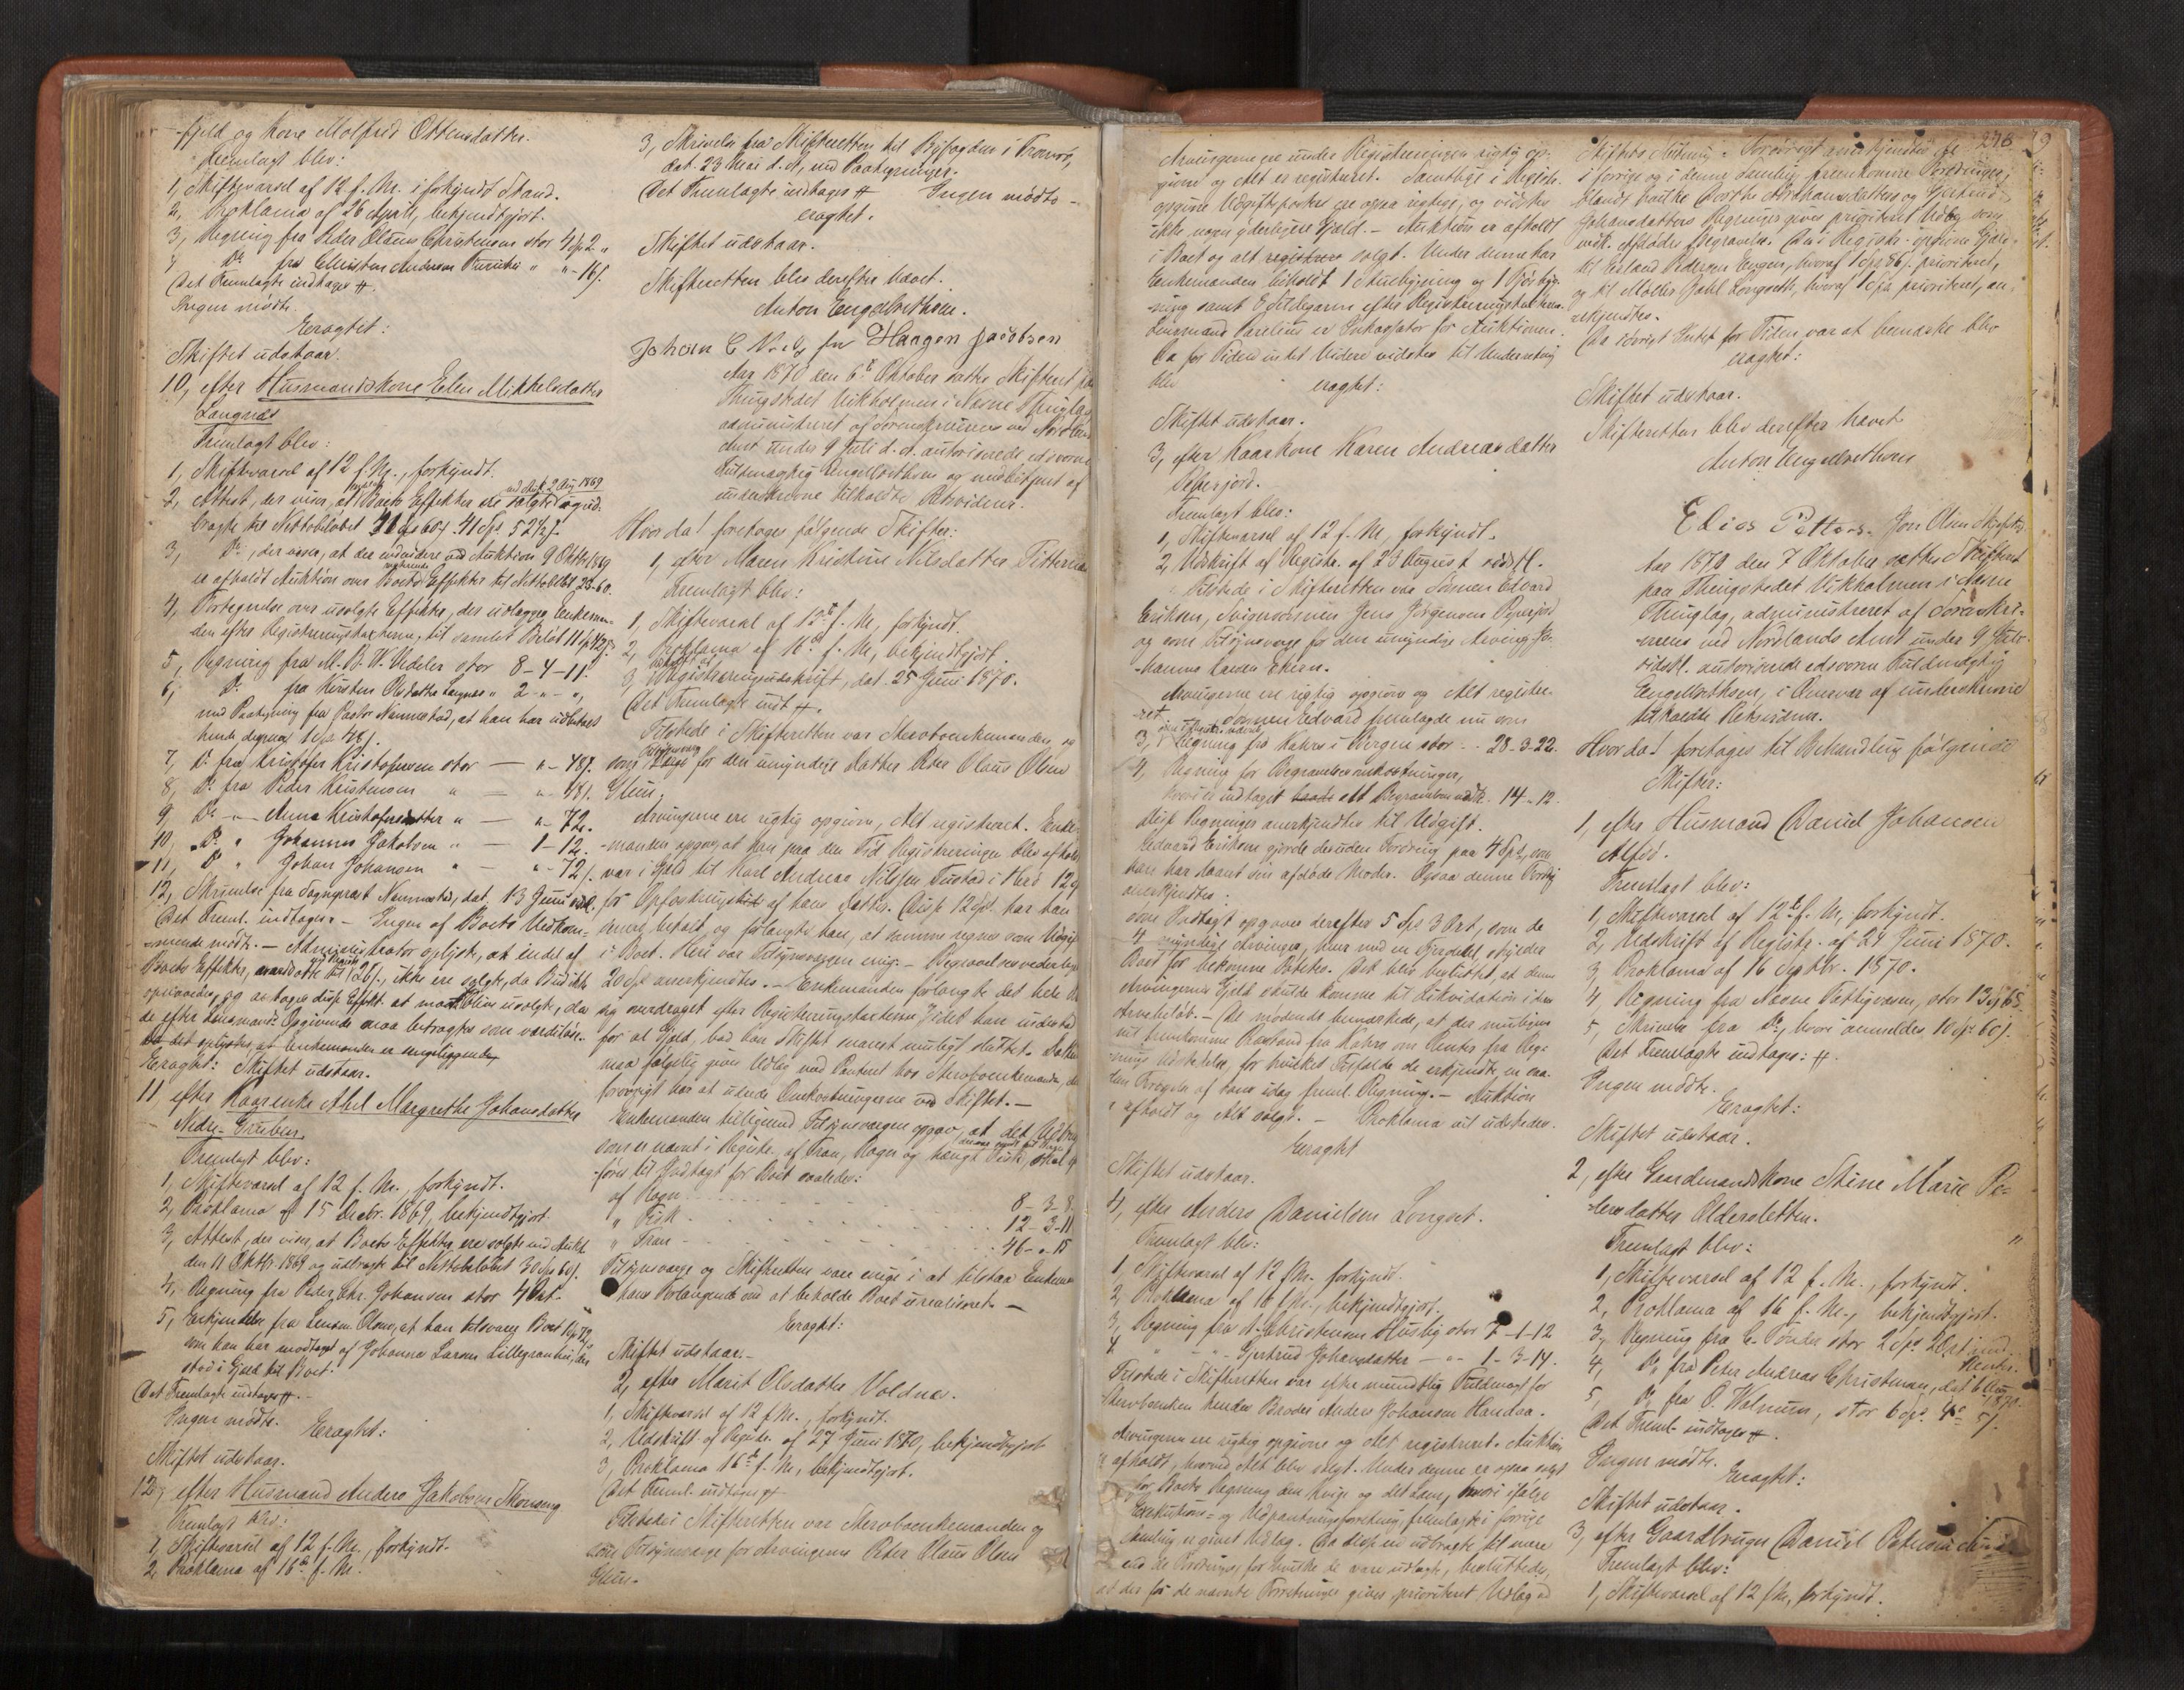 -fjeld og Kone Molfrid Ottensdatter.
Fremlagt blev:
1, Skiftevarsel af 12 f. M. i forkyndt Stand.
2, Proklama af 26 April, bekjendtgjort.
3, Regning fra Peder Olaus Christensen stor 4 Sp 2 "
4 Do fra Andersen " " - 16 s.
Det Fremlagte indtages #.
Ingen mødte.
Eragtet:
Skiftet udstaar.
10, efter Husmandskone Elen Mikkelsdatter
Langnæs
Fremlagt blev:
1, Skiftevarsel af 12 f. M., forkyndt.
2, Attest, der viser, at Boets Effekter ere solgte ved Auk. 2 Aug 1869 og ud-
bragte til Nettobeløbet 41 Spd. 52½ s.
3, Do, der viser, at der endvidere ved Auktion 9 Oktbr 1869
er afholdt Auktion over Boets Effekter til Nettobeløb 23-60.
4, Fortegnelse over usolgte Effekter, der udlægges Enkeman-
den efter Registreringstaxterne, til samlet Beløb 11 Sp 42 s.
5, Regning fra M. B. W. Vedeler stor 8-4-11.
6, Do fra Kirsten Olsdatter Langnes " 2 - " - ",
med Paategning fra Pastor Nannestad, at han har udbetalt
hende deraf 1 Sp 48 s.
7, Do fra Kristofer Kristofersen stor — " - 48 s.
8, Do fra Peder Kristensen " — " - 48 s.
9, Do - " - Anna Kristofersdatter " — " - 72.
10, Do " Johannes Jakobsen " — 1-12.
11, Do " Johan Johansen " — " - 72 s.
12, Skrivelse fra Sognepræst Nannestad, dat. 13 Juni
Det Freml. indtages. - Ingen af Boets Vedkom-
mende mødte. - Administrator oplyste, at endel af
Boets Effekter, vurderte til 126 s., ikke ere solgte, da Bud ikke
opnaaedes, og antages disse Effekt. at maatte blive usolgte, da
de efter Lensmands Opgivende maa betragtes som værdiløse.
Da det oplystes, at Enkemanden er
Eragtet: Skiftet udstaar.
11, efter Kaarenke Ahel Margrethe Johansdatter
Nedre-Gruben.
Fremlagt blev:
1, Skiftevarsel af 12 f. M., forkyndt.
2, Proklama af 15 Decbr. 1869, bekjendtgjort.
3, Attest, der viser, at Boets Effekter ere solgte ved Aukt.
den 11 Oktbr. 1869 og udbragte til Nettobeløbet 30 Sp 60 s.
4, Regning fra Peder Chr. Johansen stor 4 Ort.
5, Erkjendelse fra Lensm. Olsen, at han tilsvarer Boet 1 Sp 72,
som han har modtaget af Johannes Larsen Lillegrauben, der
stod i Gjæld til Boet.
Det Fremlagte indtages #. -
Ingen mødte.
Eragtet:
Skiftet udstaar.
12, efter Husmand Anders Jakobsen Skonseng
Fremlagt blev:
1, Skiftevarsel af 12 f. M., forkyndt.
2, Proklama af 16de f. M.
3, Skrivelse fra Skifteretten til Byfogden i Tromsø,
dat. 23 Mai d. A., med Paategninger.
Det Fremlagte indtages # Ingen mødte -
eragtet.
Skiftet udstaar.
Skifteretten blev derefter hævet.
Anton Engelbrethsen.
Johan C for Haagen Jacobsen
Aar 1870 den 6te Oktober sattes Skifteret paa
Thingstedet Vikholmen i Næsne Thinglag
administreret af Sorenskriveren ved Nordlands
Amt under 9 Juli d. A. autoriserede edsvorne
Fuldmægtig Engelbrethsen og medbetjent af
underskrevne tilkaldte Retsvidner.
Hvor da! foretoges følgende Skifter:
1, efter Maren Kristine Nilsdatter
Fremlagt blev:
1, Skiftevarsel af 12te f. M., forkyndt.
2, Proklama af 16de f. M., bekjendtgjort.
3, Registreringsudskrift, dat. 25 Juni 1870.
Det Fremlagte indt. #.
Tilstede i Skifteretten var Stervboenkemanden, og
som Tilsynsværge for den umyndige Datter Peder Olaus Olsen
Glein.
Arvingerne ere rigtig opgivne, Alt registreret. Enke-
-manden opgav, at han paa den Tid Registreringen blev afholdt
var i Gjæld til Karl Andreas Nilssen Tustad i Herø 12
for Opfostringstid af hans Datter. Disse 12 Spd. har han
senere betalt, og forlangte han, at samme regnes som Udgift
i Boet. Heri var Tilsynsværgen enig. - Begravelsesvederlag
20 Spd anerkjendtes. - Enkemanden forlangte det hele
sig overdraget efter Registreringstaxterne Idet han indestod
for al Gjæld, bad han Skiftet snarest muligt sluttet. Datteren
maa følgelig gives Udlæg ved Pantret hos Stervboenkemanden, der
forøvrigt har at udrede Omkostningerne ved Skiftet. -
Enkemanden tilligemed Tilsynsværgen opgav, at det Udbytte
som er nævnt i Registr. af Tran, Rogn og hængt Fisk, skal
føres til Indtægt for Boet saaledes:
af Rogn . . . . 8-3-8.
" Fisk . . . . 12-3-11
" Tran . . . . 46-"-15
Tilsynsværge og Skifteretten vare enige i at tilstaa Enkem.
hans Forlangende om at beholde Boet urealiseret. -
Eragtet:
Skiftet udstaar. -
2, efter Marit Olsdatter Voldnes.
1, Skiftevarsel af 12 f. M., forkyndt.
2, Udskrift af Registr. af 27 Juni 1870, bekjendtgjort
3, Proklama 16de f. M., bekjendtgjort.
Det Freml. indtoges #
Tilstede i Skifteretten var Stervboenkemanden og
som Tilsynsværge for Arvingerne Peder Olaus Olsen
Glein.
248
Arvingerne ere under Registreringen rigtig op-
givne og Alt er registreret. Samtlige i Registr.
opgivne Udgiftsposter ere ogsaa rigtige, og vidstes
ikke nogen yderligere Gjæld. - Auktion er afholdt
i Boet og alt registrere solgt. Under denne har
Enkemanden beholdt 1 Stuebygning og 1 Fjøsbyg-
-ning samt efter Registreringstaxterne.
Lensmand Parelius er Inkassator for Auktionen.
Da for Tiden intet Videre vidstes til Underretning
blev eragtet:
Skiftet udstaar.
3, efter Kaarkone Karen Andreasdatter
Fremlagt blev:
1, Skiftevarsel af 12 f. M., forkyndt.
2, Udskrift af Registr. af 23 August
Tilstede i Skifteretten var Sønnen Edvard
Eriksen, Svigersønnen Jens Jørgensen
og som Tilsynsværge for den umyndige Arveing Jo-
hanna
Arvingerne ere rigtig opgivne og Alt registre-
-ret. Sønnen Edvard fremlagde nu som
3, Regning fra Kahrs i Bergen stor . . 28-3-22.
4, Regning for Begravelsesomkostninger,
hvori er indtaget Begravelsen 14-12.
disse Regninger anerkjendtes til Udgift.
Edvard Eriksen gjorde desuden Fordring paa 4 Spd, som
han har laant sin afdøde Moder. Ogsaa denne Fordring
anerkjendtes.
Som Indtægt opgaves derefter 5 Spd 3 Ort, som de
4 myndige Arvinger, hver med en Fjerdedel, skylder
Boet for bekomne Poteter. Det blev besluttet, at denne
Arvingernes Gjæld skulde komme til Likvidation i den
Arvebeløb. - De mødende bemærkede, at der muligens
vil fremkomme Paastand fra Kahrs om Renter fra Reg-
nings Udstedelse, for hvilket Tilfælde de erkjendte en saa-
dan Forøgelse af hans idag freml. Regning. - Auktion
er afholdt og Alt solgt. - Proklama vil udstedes.
Eragtet
Skiftet udstaar.
4, efter Anders Danielsen Longset.
Fremlagt blev:
1, Skiftevarsel af 12 f. M. forkyndt.
2, Proklama af 16 f. M., bekjendtgjort.
3, Regning fra A. Christensen Husby stor 7-1-12
4 " - Gjertrud Johansdatter - " - 1-3-14.
Tilstede i Skifteretten var efter mundtlig Fuldmagt for
Stervboenken hendes Broder Anders Johansen Handaa.
Arvingerne ere rigtig opgivne og Alt registreret. Auktion
er afholdt, hvorved Alt blev solgt. Under denne er ogsaa solgt
for Boets Regning den Kvige og det Lam, hvori ifølge
Exekutions- og Udpantningsforretning, fremlagte i forrige
Samling er givet Udlæg. Da disse ere udbragte til mere
end de Fordringer, for hvilke de vare udlagte, besluttedes,
at der for de nævnte Forretninger gives prioriteret Udlæg ved
Skiftets Slutning. Forøvrigt anerkjendtes de
i forrige og i denne Samling fremkomne Fordringer,
blandt hvilke Dorthe Abrahamsdatters og Gjertrud
Johansdatters Regninger gives prioriteret Udlæg som
vedk. Afdødes Begravelse. Den i Registr. opgivne Gjæld
til Erland Pedersen Engen, hvoraf 1 Spd 86 s. prioriteret,
og til Møller Dahl Longseth, hvoraf 1 Spd prioriteret, an-
erkjendtes.
Da iøvrigt Intet for Tiden var at bemærke blev
eragtet:
Skiftet udstaar.
Skifteretten blev derefter hævet
Anton Engelbrethsen
Elias Petters. Jon Olsen
Aar 1870 den 7 Oktober sattes Skifteret
paa Thingstedet Vikholmen i Næsne
Thinglag, administreret af Sorenskri-
veren ved Nordlands Amt under 9 Juli
sidstl. autoriserede edsvorne Fuldmægtig
Engelbrethsen, i Overvær af underskrevne
tilkaldte Retsvidner.
Hvor da! foretoges til Behandling følgende
Skifter:
1, efter Husmand Daniel Johansen
Alsøe.
Fremlagt blev:
1, Skiftevarsel af 12te f. M., forkyndt.
2, Udskrift af Registr. af 24 Juni 1870.
3, Proklama af 16 Septbr. 1870.
4 Regning fra Næsne Fattigvæsen, stor 13 Sp 65
5, Skrivelse fra Do, hvori anmeldes 10 Sp 60 s.
Det Fremlagte indtages: #.
Ingen mødte.
Eragtet:
Skiftet udstaar.
2, efter Gaardmandskone Stine Marie Pe-
dersdatter Oldersletten.
Fremlagt blev:
1, Skiftevarsel af 12 f. M., forkyndt.
2, Proklama af 16 f. M., bekjendtgjort.
3, Regning fra C. stor 2 Spd 2 Ort
4, Do fra Peter Andreas Christensen, dat. 6 Aug. 1870.
5 Do fra O. Walnum, stor 6 Sp.
Det Freml. indtages #.
Ingen mødte.
Eragtet:
Skiftet udstaar.
3, efter Gaardbruger Daniel Petersen
Fremlagt blev:
1, Skiftevarsel af 12 f. M., forkyndt.